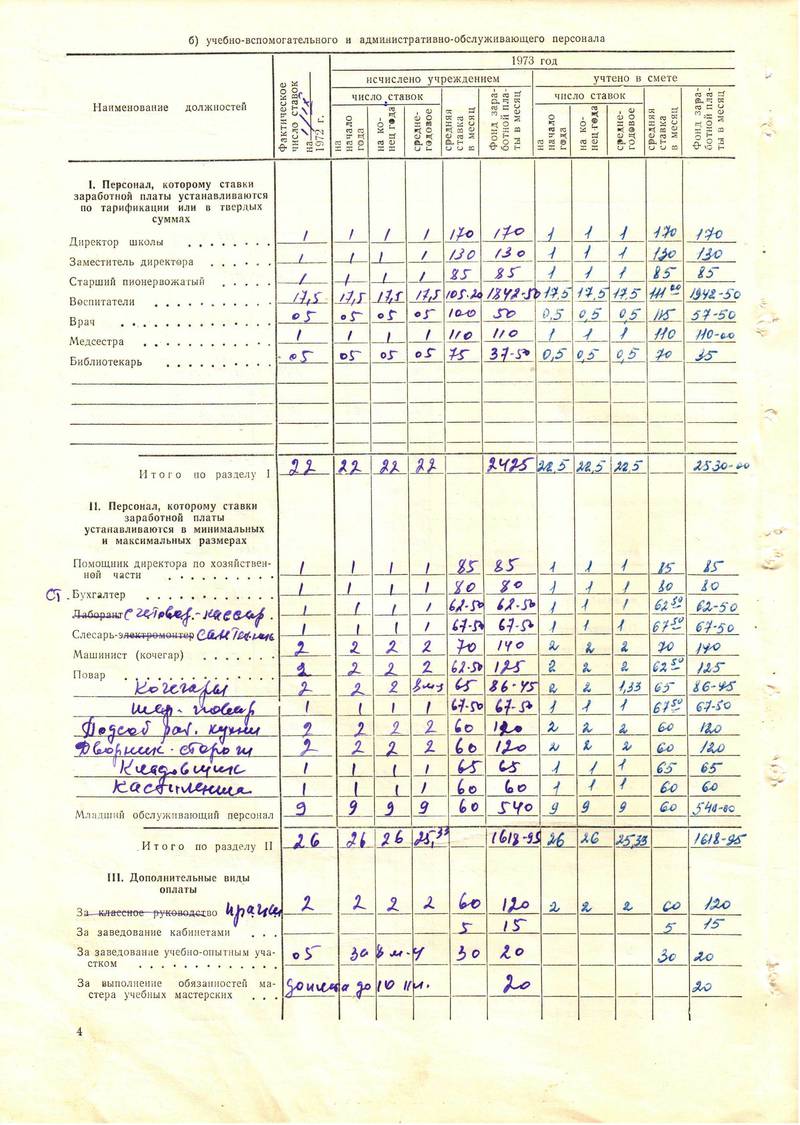 б) учебно-вспомогательного и административно-обслуживающего персонала
Наименование должностей
Фактическое число ставок на 1972 г.
1973 год
исчислено учреждением
учтено в смете
число ставок
число ставок
на начало года
на конец года
средне-годовое
средняя ставка в месяц
Фонд заработной платы в месяц
на начало года
на конец года
средне-годовое
средняя ставка в месяц
Фонд заработной платы в месяц
I. Персонал, которому ставки
заработной платы устанавливаются
по тарификации или в твердых
суммах
Директор школы 1 1 1 1 170 170 1 1 1 170 170
Заместитель директора 1 1 1 1 130 130 1 1 1 130 130
Старший пионервожатый 1 1 1 1 85 85 1 1 1 85 85
Воспитатели 17,5 17,5 17,5 17,5 105.20 1842-50 17,5 17,5 17,5 111 00 1942-50
Врач 05 05 05 05 100 50 0,5 0,5 0,5 115 57-50
Медсестра 1 1 1 1 110 110 1 1 1 110 110-00
Библиотекарь 05 05 05 05 75 37-50 0,5 0,5 0,5 70 35
Итого по разделу I 22 22 22 22 2425 22,5 22,5 22,5 2530-00
II. Персонал, которому ставки
заработной платы
устанавливаются в минимальных
и максимальных размерах
Помощник директора по хозяйствен-
ной части 1 1 1 1 85 85 1 1 1 85 85
Ст. Бухгалтер 1 1 1 1 80 80 1 1 1 80 80
Лаборант счетовод-кассир 1 1 1 1 62-50 62-50 1 1 1 62 50 62-50
Слесарь-электромонтер сантехник 1 1 1 1 67-50 67-50 1 1 1 67 50 67-50
Машинист (кочегар) 2 2 2 2 70 140 2 2 2 70 140
Повар 2 2 2 2 62-50 125 2 2 2 62 50 125
Кочегары 2 2 2 8 м-ц 65 86-45 2 2 1,33 65 86-45
Шеф-повар 1 1 1 1 67-50 67-50 1 1 1 67 50 67-50
Подсоб раб. кухни 2 2 2 2 60 120 2 2 2 60 120
Дворник-сторож 2 2 2 2 60 120 2 2 2 60 120
Кладовщик 1 1 1 1 65 65 1 1 1 65 65
Кастелянша 1 1 1 1 60 60 1 1 1 60 60
Младший обслуживающий персонал 9 9 9 9 60 540 9 9 9 60 540-00
Итого по разделу II 26 26 26 25,33 1618-95 26 26 25,33 1618-95
III. Дополнительные виды
оплаты
За классное руководство прачки 2 2 2 2 60 120 2 2 2 60 120
За заведование кабинетами 5 15 5 15
За заведование учебно-опытным уча-
стком 05 за 8 м-ц 30 20 30 20
За выполнение обязанностей ма-
стера учебных мастерских доплата до 20 20
4